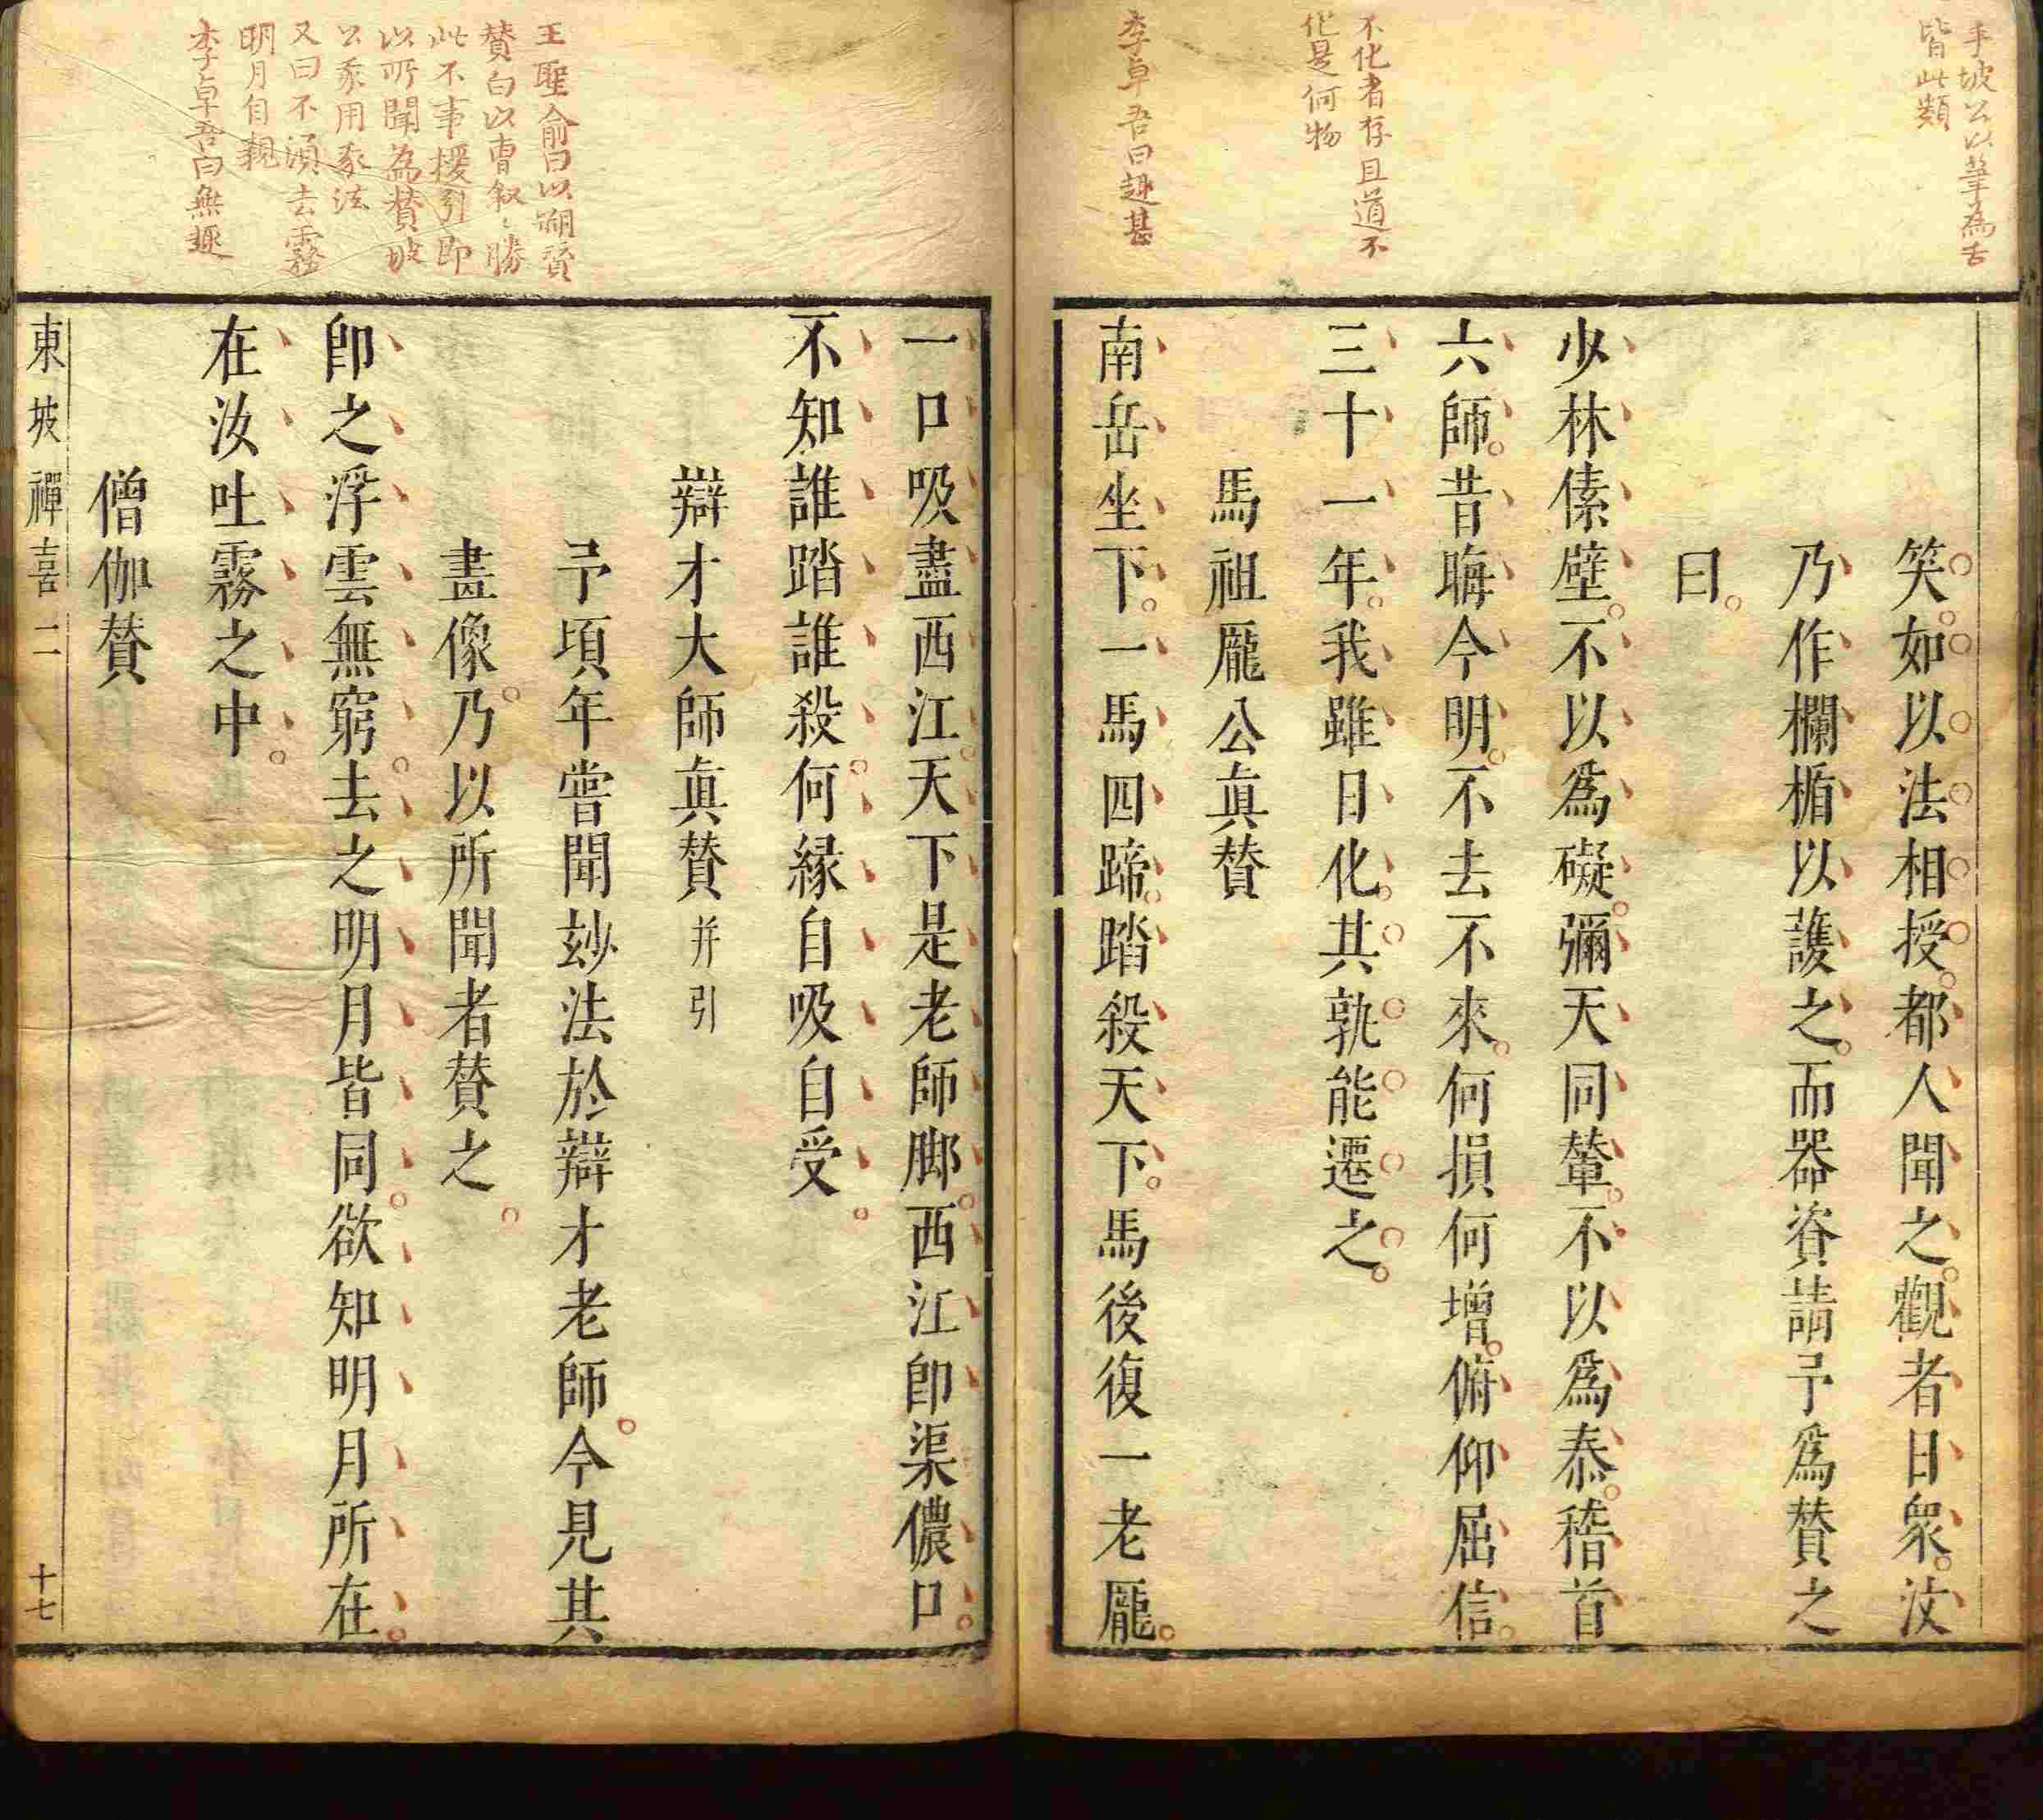 手坡公以筆為舌
皆此類
不化者存且道不
化是何物
李卓吾曰趣甚
笑。如以法相授。都人聞之。觀者日衆。汶
乃作欄楯以護之。而器資請予爲賛之
曰。
少林傃壁。不以爲礙。彌天同輦。不以爲泰。稽首
六師。昔晦今明。不去不來。何損何增。俯仰屈信。
三十一年。我雖日化。其孰能遷之。
馬祖龐公真賛
南岳坐下。一馬四蹄。踏殺天下。馬後復一老龐。
王聖俞曰以朔贊
賛白以曹叙〻勝
此不事援引即
以所聞為賛坡
公豕用豕法
又曰不須去霧
明月自親
李卓吾曰無趣
一口吸盡西江。天下是老師脚。西江即渠儂口。
不知誰踏誰殺。何縁自吸自受。
辯才大師真賛并引
予頃年嘗聞玅法於辯才老師。今見其
畫像。乃以所聞者賛之。
即之浮雲無窮。去之明月皆同。欲知明月所在。
在汝吐霧之中。
僧伽賛
東坡禪喜二
十七